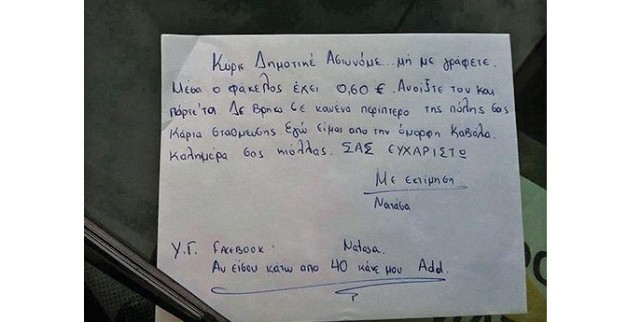 Κύριε Δημοτικέ Αστυνόμε... μή με γράφετε.
Μέσα ο φάκελος έχει 0,60 €. Ανοίξτε τον και
πάρτε 'τα. Δε βρήκα σε κανένα περίπτερο της πόλης σας
Κάρτα στάθμευσης. Εγώ είμαι από την όμορφη Καβάλα.
Καλημέρα σας κιόλλας. ΣΑΣ ΕΥΧΑΡΙΣΤΩ
Με εκτίμηση
Νατάσα
Υ.Γ. FACEBOOK: Natasa.
Αν είσαι κάτω απο 40 κάνε μου Add.